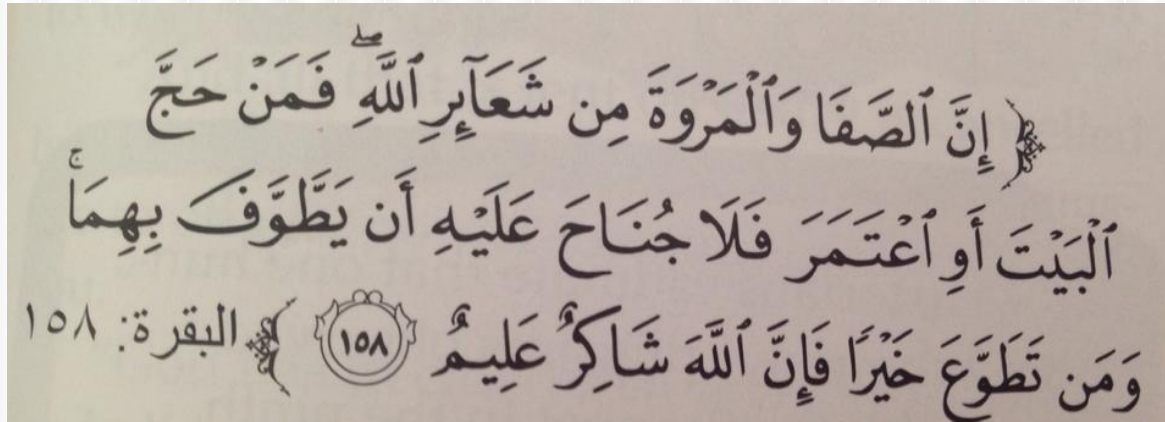 ﴿ إِنَّ ٱلصَّفَا وَٱلْمَرْوَةَ مِن شَعَآئِرِ ٱللَّهِۖ فَمَنْ حَجَّ
ٱلْبَيْتَ أَوِ ٱعْتَمَرَ فَلَا جُنَاحَ عَلَيْهِ أَن يَطَّوَّفَ بِهِمَاۚ
وَمَن تَطَوَّعَ خَيْرًا فَإِنَّ ٱللَّهَ شَاكِرٌ عَلِيمٌ ١٥٨ ﴾ البقرة: ١٥٨